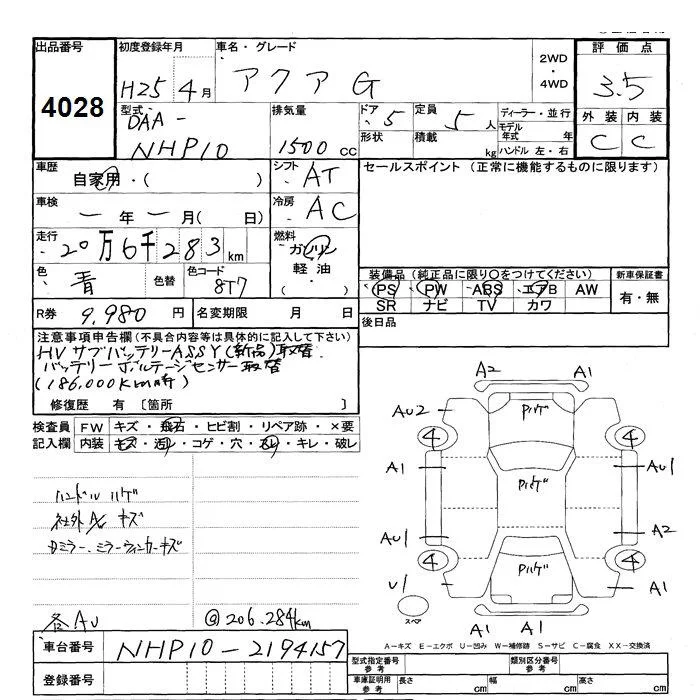 出品番号 初度登録年月 車名・グレード 2WD・4WD 評価点
4028 H25 4月 アクア G 3.5
型式 DAA- NHP10 排気量 1500cc ドア 5 定員 5人 ディーラー・並行 外装 内装
形状 積載 kg モデル年式 年 ハンドル 左・右 C C
車歴 自家用・( ) シフト AT セールスポイント (正常に機能するものに限ります)
車検 ー年ー月( 日) 冷房 AC
走行 20万6千283km 燃料 ガソリン・軽油・
色 青 色替 色コード 8T7
装備品(純正品に限り○をつけてください) 新車保証書
PS PW ABS エアB AW 有・無
SR ナビ TV カワ
R券 9,980円 名変期限 月 日 後日品
注意事項申告欄(不具合内容等は具体的に記入して下さい)
HVサブバッテリーASSY(新品)取替.
バッテリーボルテージセンサー取替
(186,000Km時)
修復歴 有 〔箇所 〕
検査員 FW キズ・飛石・ヒビ割・リペア跡・×要
記入欄 内装 キズ・汚レ・コゲ・穴・スレ・キレ・破レ
ハンドル ハゲ
社外A/ キズ
Dミラー、ミラーウィンカーキズ
各AU @206.284km
A2 A1
AU2 Pハゲ A1
4 4
A1 Pハゲ AU1
AU1 A2
4 Pハゲ 4
U1 A1
スペア A1 A1
A-キズ E-エクボ U-凹み W-補修跡 S-サビ C-腐食 XX-交換済
車台番号 NHP10-2194157
型式指定番号 参考 類別区分番号 参考
登録番号 車庫証明用 参考 長さ cm 幅 cm 高さ cm